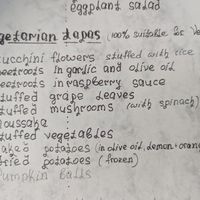 eggplant salad
getarian tapas (100% suitable for Ve
ucchini flowers stuffed with rice
eetroots in garlic and olive oil
eetroots in raspberry sauce
tuffed grape leaves
tuffed mushrooms (with spinach)
oussaka
tuffed vegetables
aked potatoes (in olive oil, lemon + oran
ried potatoes (frozen)
Pumpkin balls